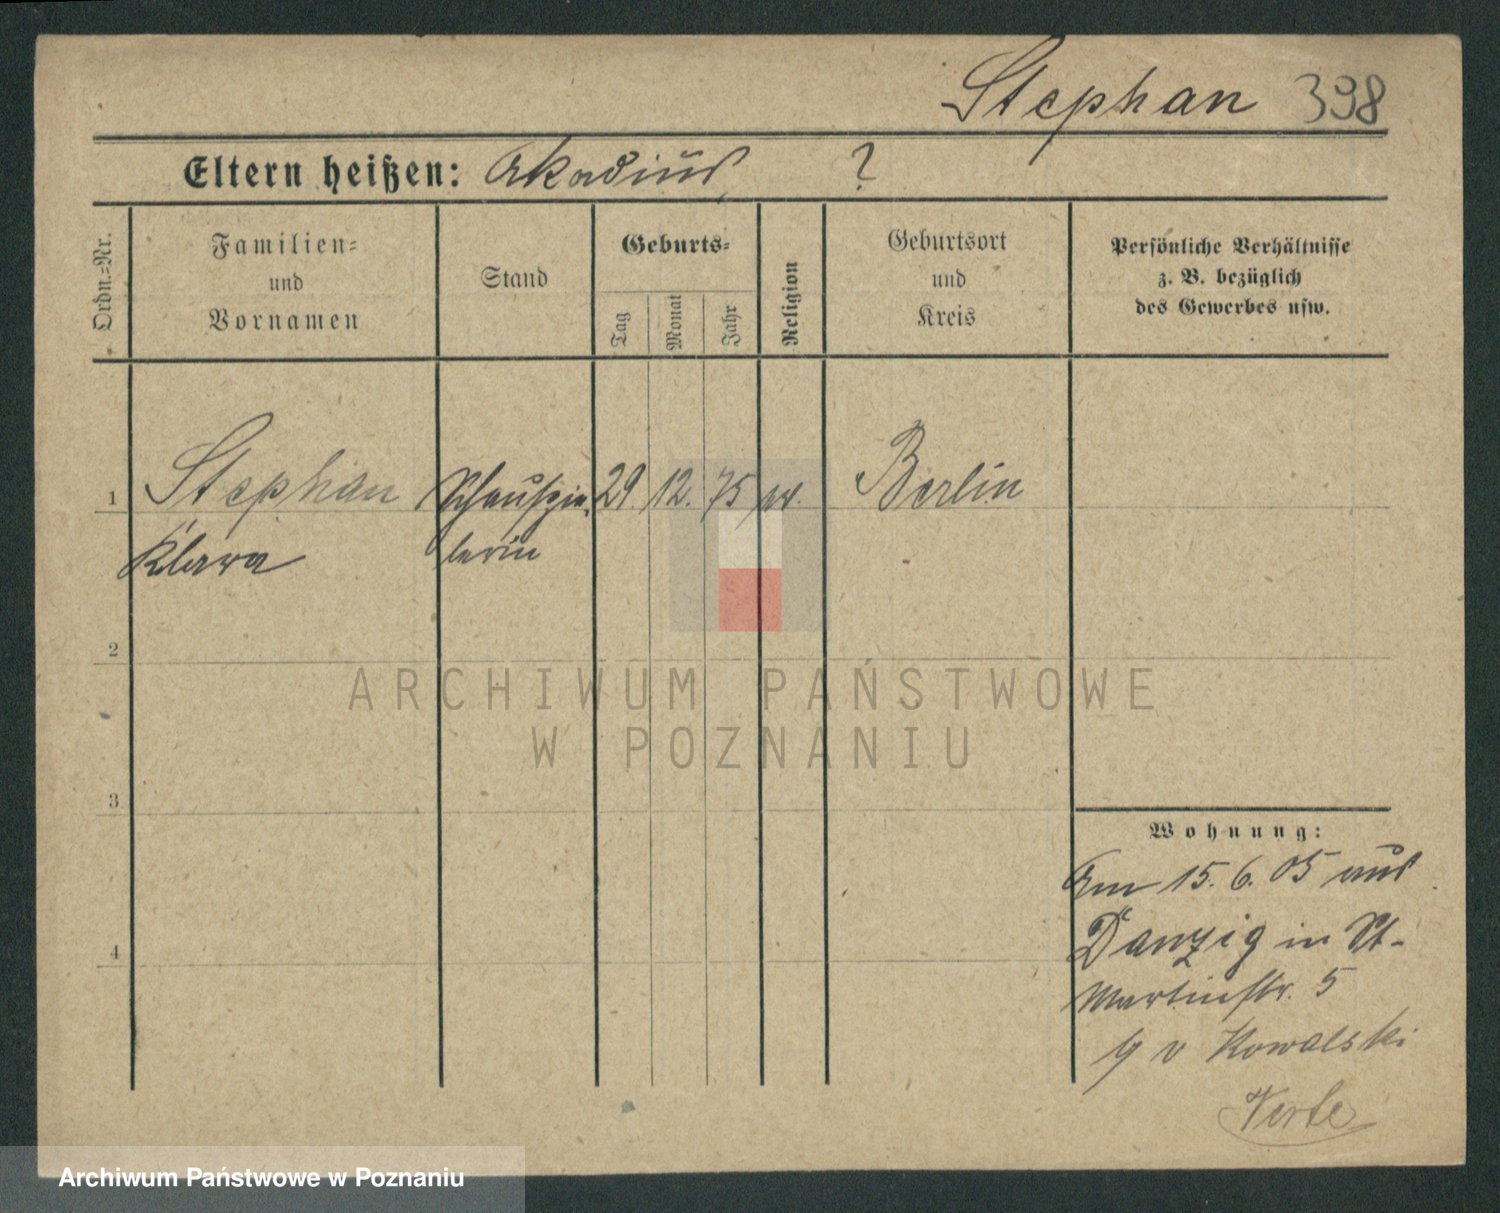 Stephan 398
Eltern heißen: Akadius ?
Ordn.=Nr.
Familien=
und
Vornamen
Stand
Geburts=
Tag
Monat
Jahr
Religion
Geburtsort
und
Kreis
Persönliche Verhältnisse
z. B. bezüglich
des Gewerbes usw.
1 Stephan Schauspie- 29. 12. 75 ev. Berlin
Klara lerin
2
3
4
Wohnung:
Am 15. 6. 05 aus
Danzig in St-
Martinstr. 5
v Kowalski
ARCHIWUM PAŃSTWOWE
W POZNANIU
Archiwum Państwowe w Poznaniu